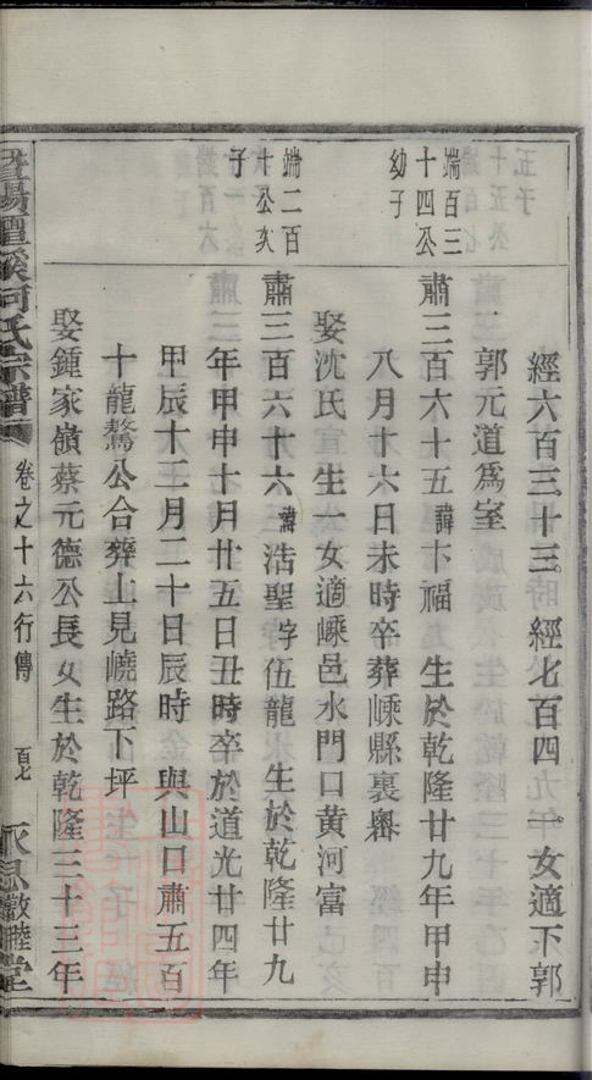 經六百三十三 經七百四 一女適下郭
郭元道爲室
端百三
十四公
幼子
肅三百六十五諱卞福 生於乾隆廿九年甲申
八月十六日未時卒葬嵊縣裏嶴
娶沈氏宣 生一女適嵊邑水門口黄河富
端二百
十公次
子
肅三百六十六諱浩聖字伍龍 生於乾隆廿九
年甲申十月廿五日丑時卒於道光廿四年
甲辰十二月二十日辰時 與山口肅五百
十龍鰲公合葬上見嶢路下坪
娶鍾家嶺蔡元德公長女生於乾隆三十三年
暨陽 溪何氏宗譜 卷之十六行傳 百七 永思敦睦堂